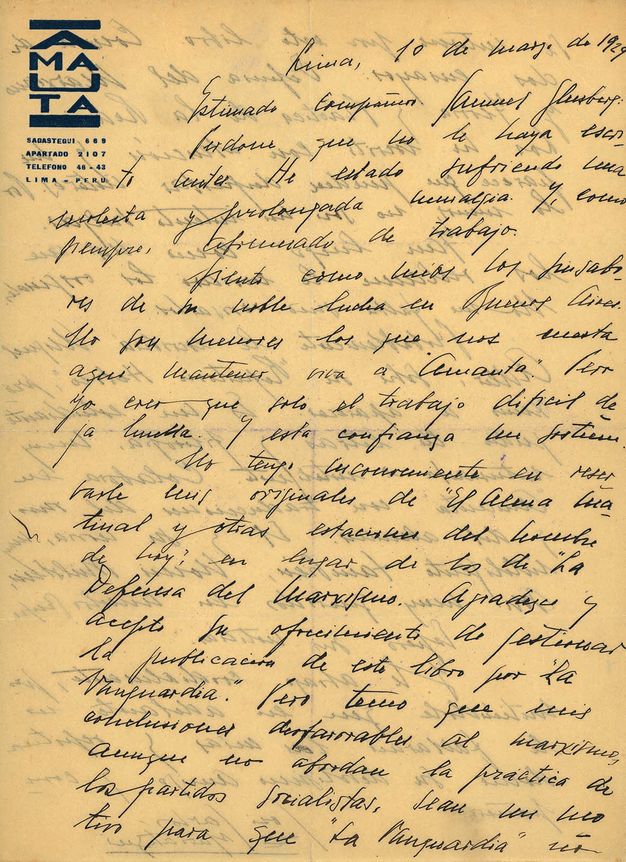 AMAUTA
SAGASTEGUI 669
APARTADO 2107
TELEFONO 46-43
LIMA - PERU
Lima, 10 de marzo de 1929
Estimado compañero Samuel Glusberg:
Perdone que no le haya escri-
to antes. He estado sufriendo una
molesta y prolongada neuralgia y, como
siempre, abrumado de trabajo.
Siento como mios los sinsabo-
res de su noble lucha en Buenos Aires.
No son menores los que nos cuesta
aquí mantener viva a "Amauta". Pero
yo creo que solo el trabajo dificil de-
ja huella. Y esta confianza me sostiene.
No tengo inconveniente en reser-
varle mis originales de "El Alma Ma-
tinal y otras estaciones del hombre
de hoy", en lugar de los de "La
Defensa del Marxismo. Agradezco y
acepto su ofrecimiento de gestionar
la publicacion de este libro por "La
Vanguardia". Pero temo que mis
conclusiones desfavorables al marxismo,
aunque no abordan la práctica de
los partidos socialistas, sean un mo
tivo para que "La Vanguardia" no